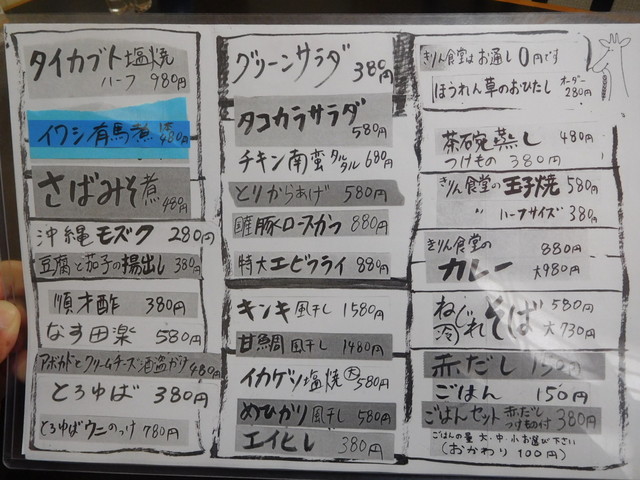 タイカブト塩焼
ハーフ 980円
イワシ有馬煮 480円
さばみそ煮 480円
沖縄モズク 280円
豆腐と茄子の揚出し 380円
順才酢 380円
なす田楽 580円
アボカドとクリームチーズ酒盗がけ 480円
とろゆば 380円
とろゆばウニのっけ 780円
グリーンサラダ 380円
タコカラサラダ 580円
チキン南蛮タルタル 680円
とりからあげ 580円
豚ロースかつ 880円
特大エビフライ 880円
キンキ風干し 1580円
甘鯛風干し 1480円
イカゲソ塩焼 大 580円
めひかり風干し 580円
エイヒレ 380円
きりん食堂はお通し0円です
ほうれん草のおひたし オーダー 280円
茶碗蒸し 480円
つけもの 380円
きりん食堂の玉子焼 580円
〃 ハーフサイズ 380円
きりん食堂の
カレー 880円
大980円
ねじれそば 580円
冷 大730円
赤だし 150円
ごはん 150円
ごはんセット 赤だし つけもの付 380円
ごはんの量 大・中・小お選び下さい
(おかわり 100円)